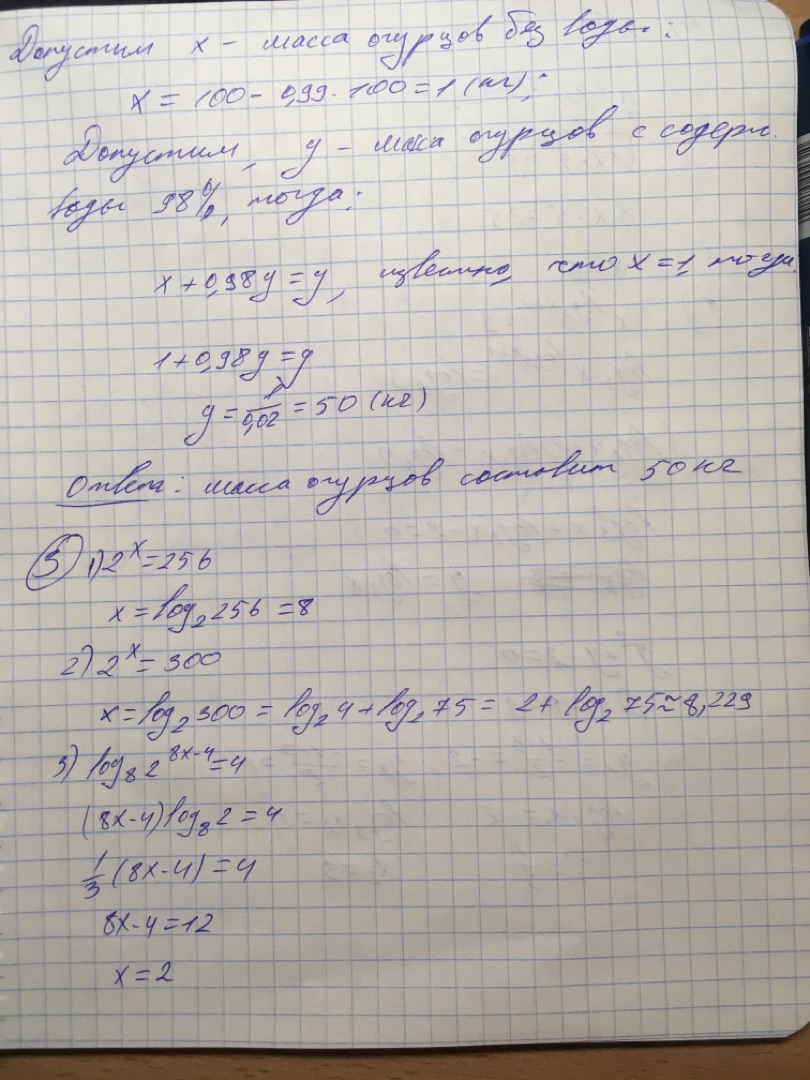 Допустим x - масса огурцов без воды:
x = 100 - 0,99 · 100 = 1 (кг);
Допустим, y - масса огурцов с содерж.
воды 98%, тогда:
x + 0,98y = y, известно, что x = 1, тогда
1 + 0,98y = y
y = 1/0,02 = 50 (кг)
Ответ: масса огурцов составит 50 кг
5 1) 2^x = 256
x = log₂ 256 = 8
2) 2^x = 300
x = log₂ 300 = log₂ 4 + log₂ 75 = 2 + log₂ 75 ≈ 8,229
3) log₈ 2^(8x-4) = 4
(8x-4) log₈ 2 = 4
1/3 (8x-4) = 4
8x-4 = 12
x = 2